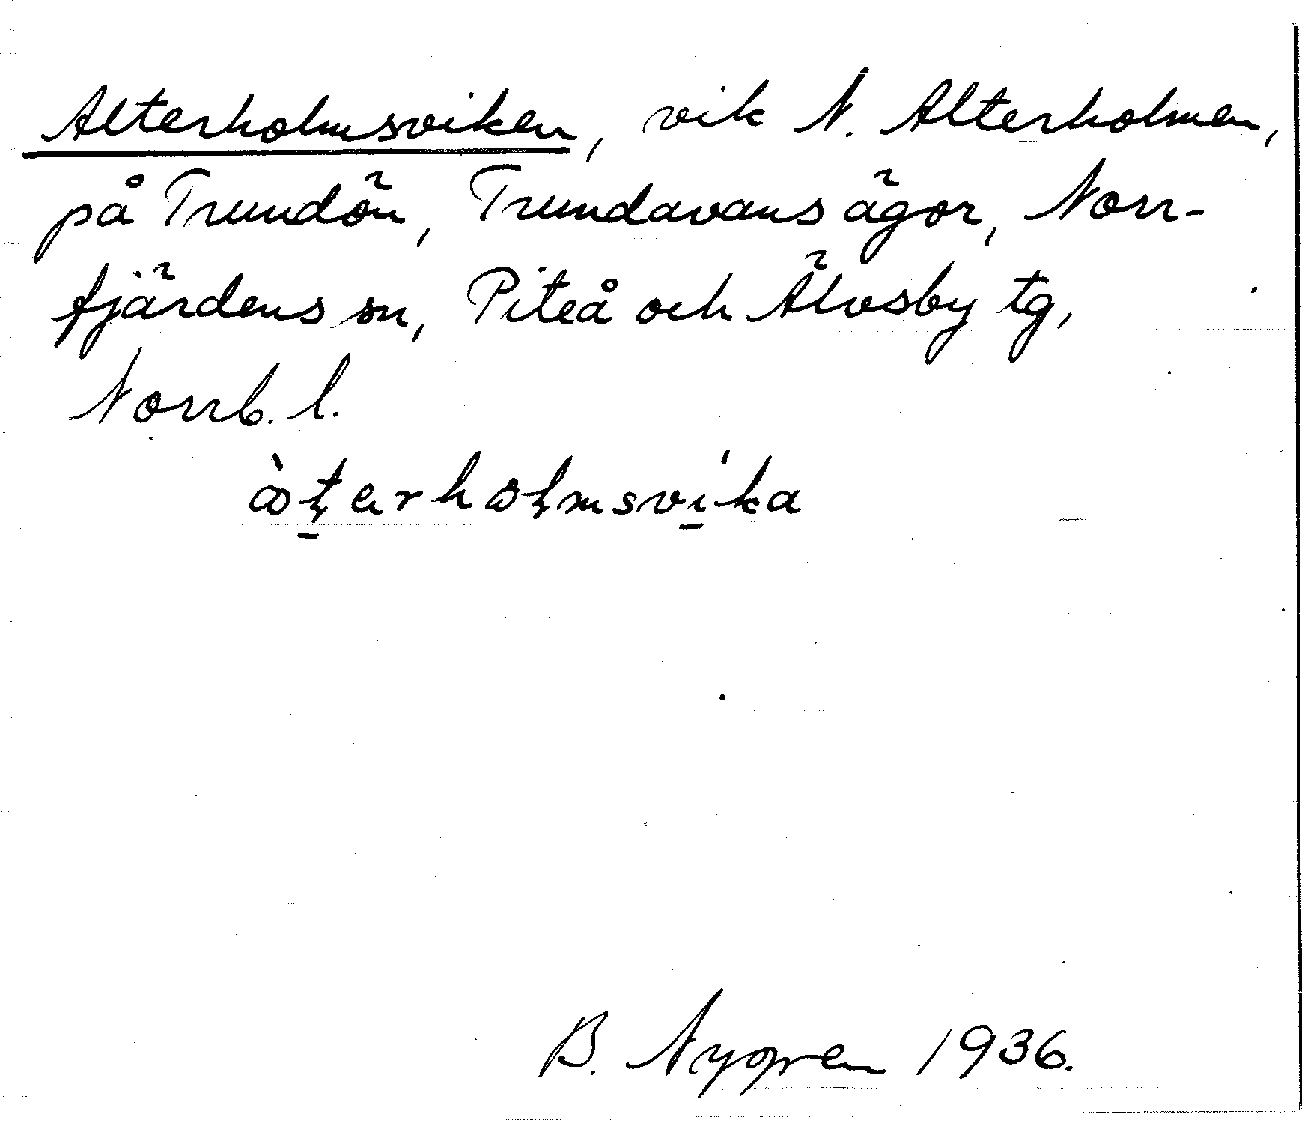 Alterholmsviken, vik N. Alterholmen,
på Trundön, Trundavans ägor, Norr-
fjärdens sn, Piteå och Älvsby tg,
Norrb. l.
B. Nygren 1936.